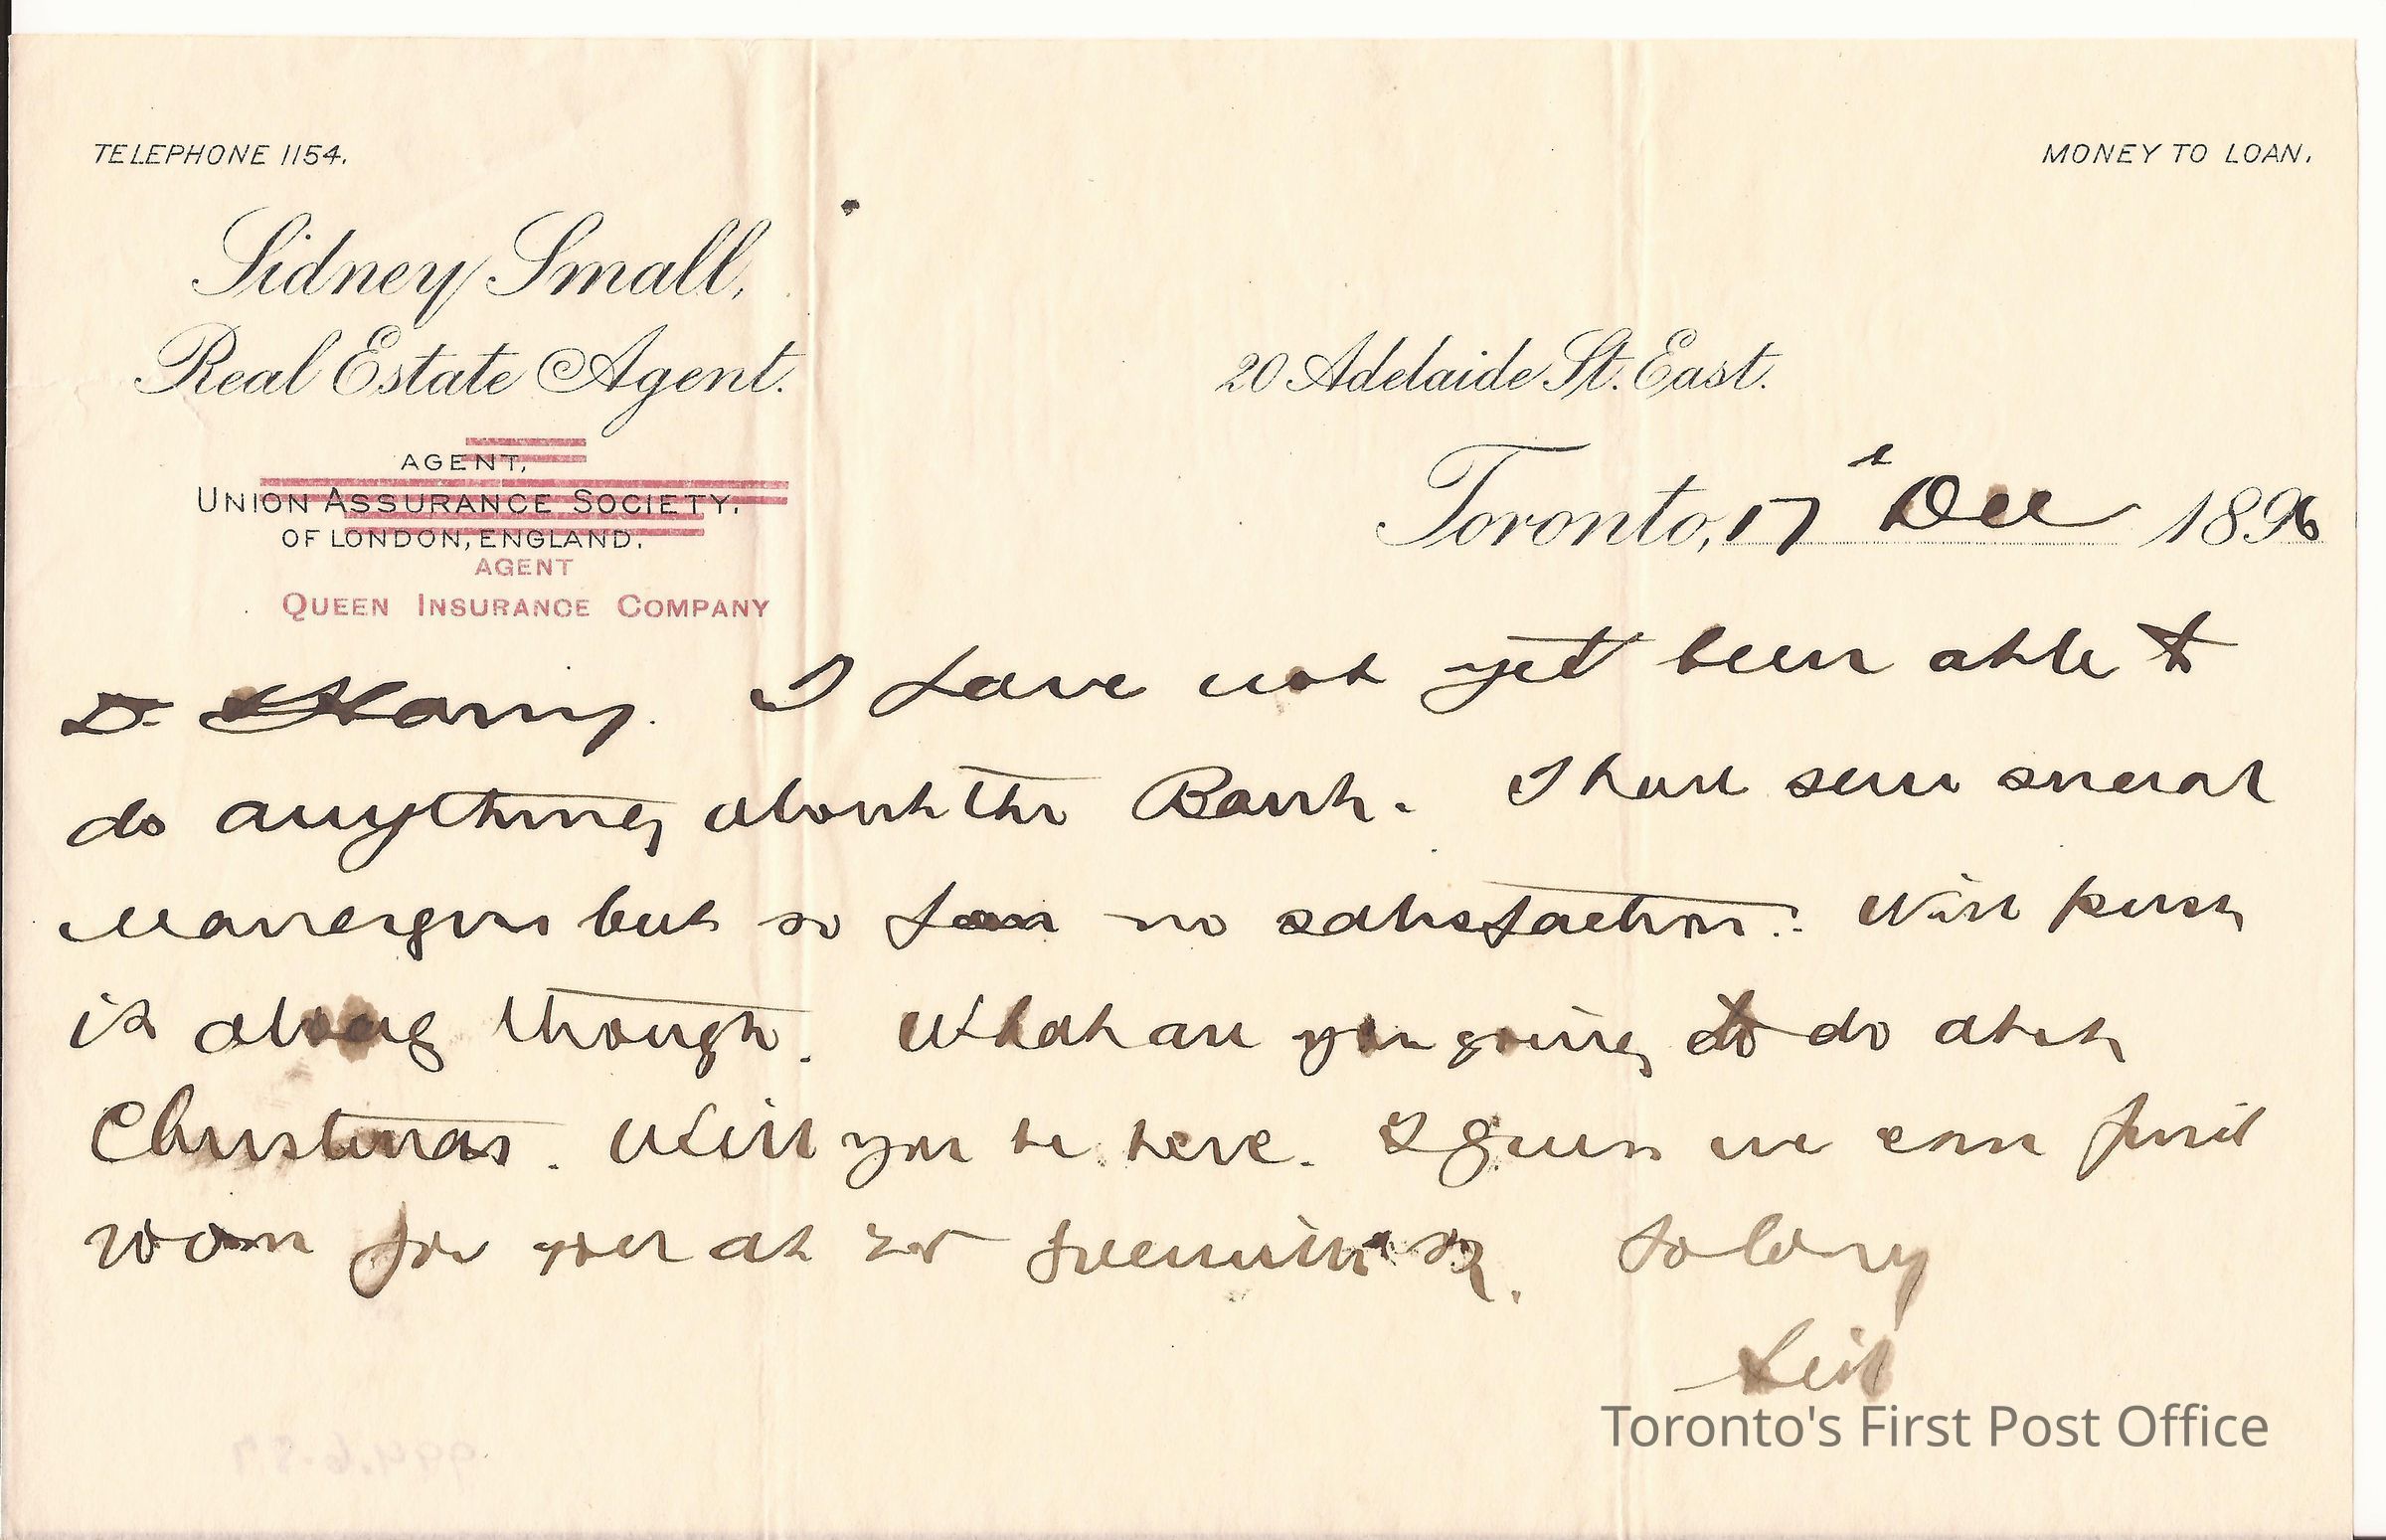 TELEPHONE 1154.
MONEY TO LOAN.
Sidney Small,
Real Estate Agent.
20 Adelaide St. East.
AGENT,
UNION ASSURANCE SOCIETY.
OF LONDON, ENGLAND.
AGENT
QUEEN INSURANCE COMPANY
Toronto, 17 Dec 1896
D. Harry. I have not yet been able to
do anything about the Bank. I have seen several
Managers but so far no satisfaction. Will push
it along though. What are you going to do at
Christmas. Will you be here. I guess we can find
room for you at
So long
Sid
Toronto's First Post Office